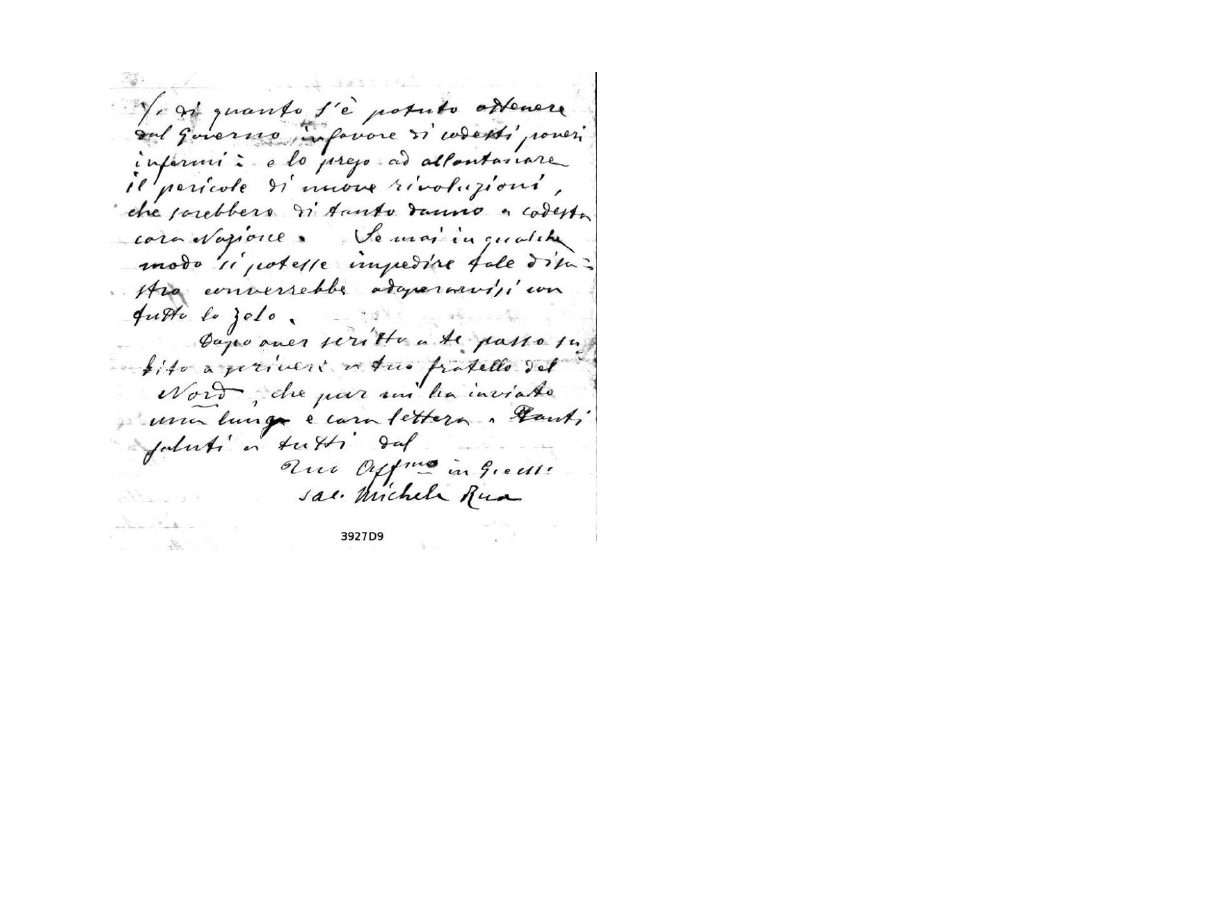 S. di quanto s'è potuto ottenere
dal Governo in favore di codesti poveri
infermi: e lo prego ad allontanare
il pericolo di nuove rivoluzioni,
che sarebbero di tanto danno a codesta
cara Nazione. Se mai in qualche
modo si potesse impedire tale disa=
stro converrebbe adoperarvisi con
tutto lo zelo.
Dopo aver scritto a te passo su
bito a scrivere a tuo fratello del
Nord, che pur mi ha inviato
una lunga e cara lettera. Tanti
saluti a tutti dal
Tuo Aff.mo in G.
Sac. Michele Rua
3927D9